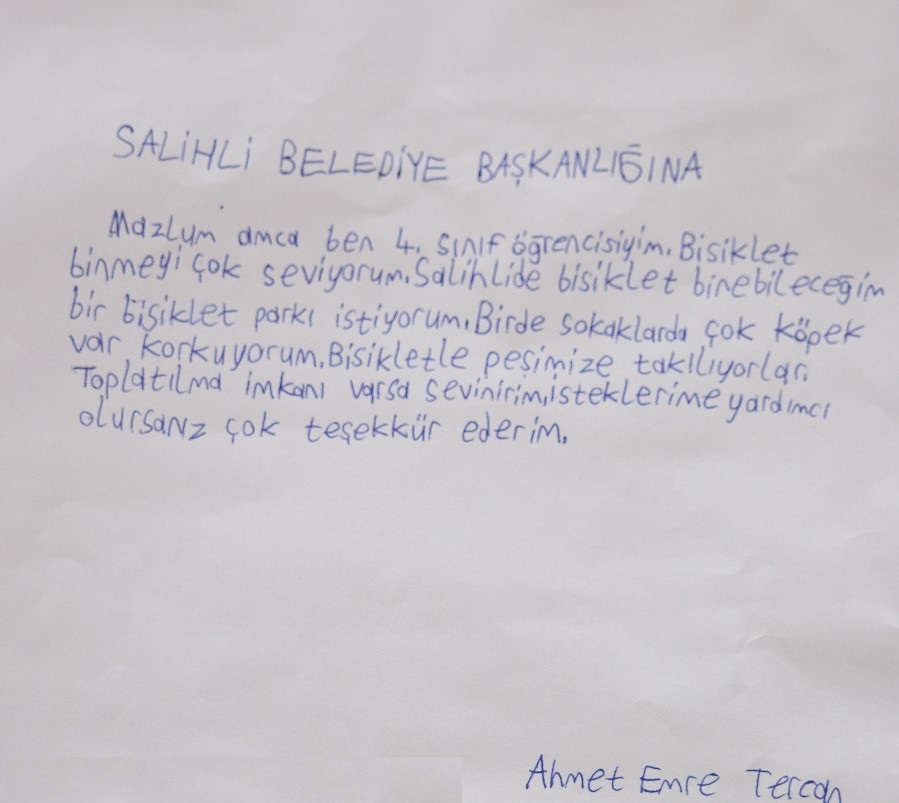 SALİHLİ BELEDİYE BAŞKANLIĞINA
Mazlum amca ben 4. sınıf öğrencisiyim. Bisiklet
binmeyi çok seviyorum. Salihlide bisiklet binebileceğim
bir bisiklet parkı istiyorum. Birde sokaklarda çok köpek
var, korkuyorum. Bisikletle peşimize takılıyorlar.
Toplatılma imkanı varsa sevinirim. isteklerime yardımcı
olursanz çok teşekkür ederim.
Ahmet Emre Tercan